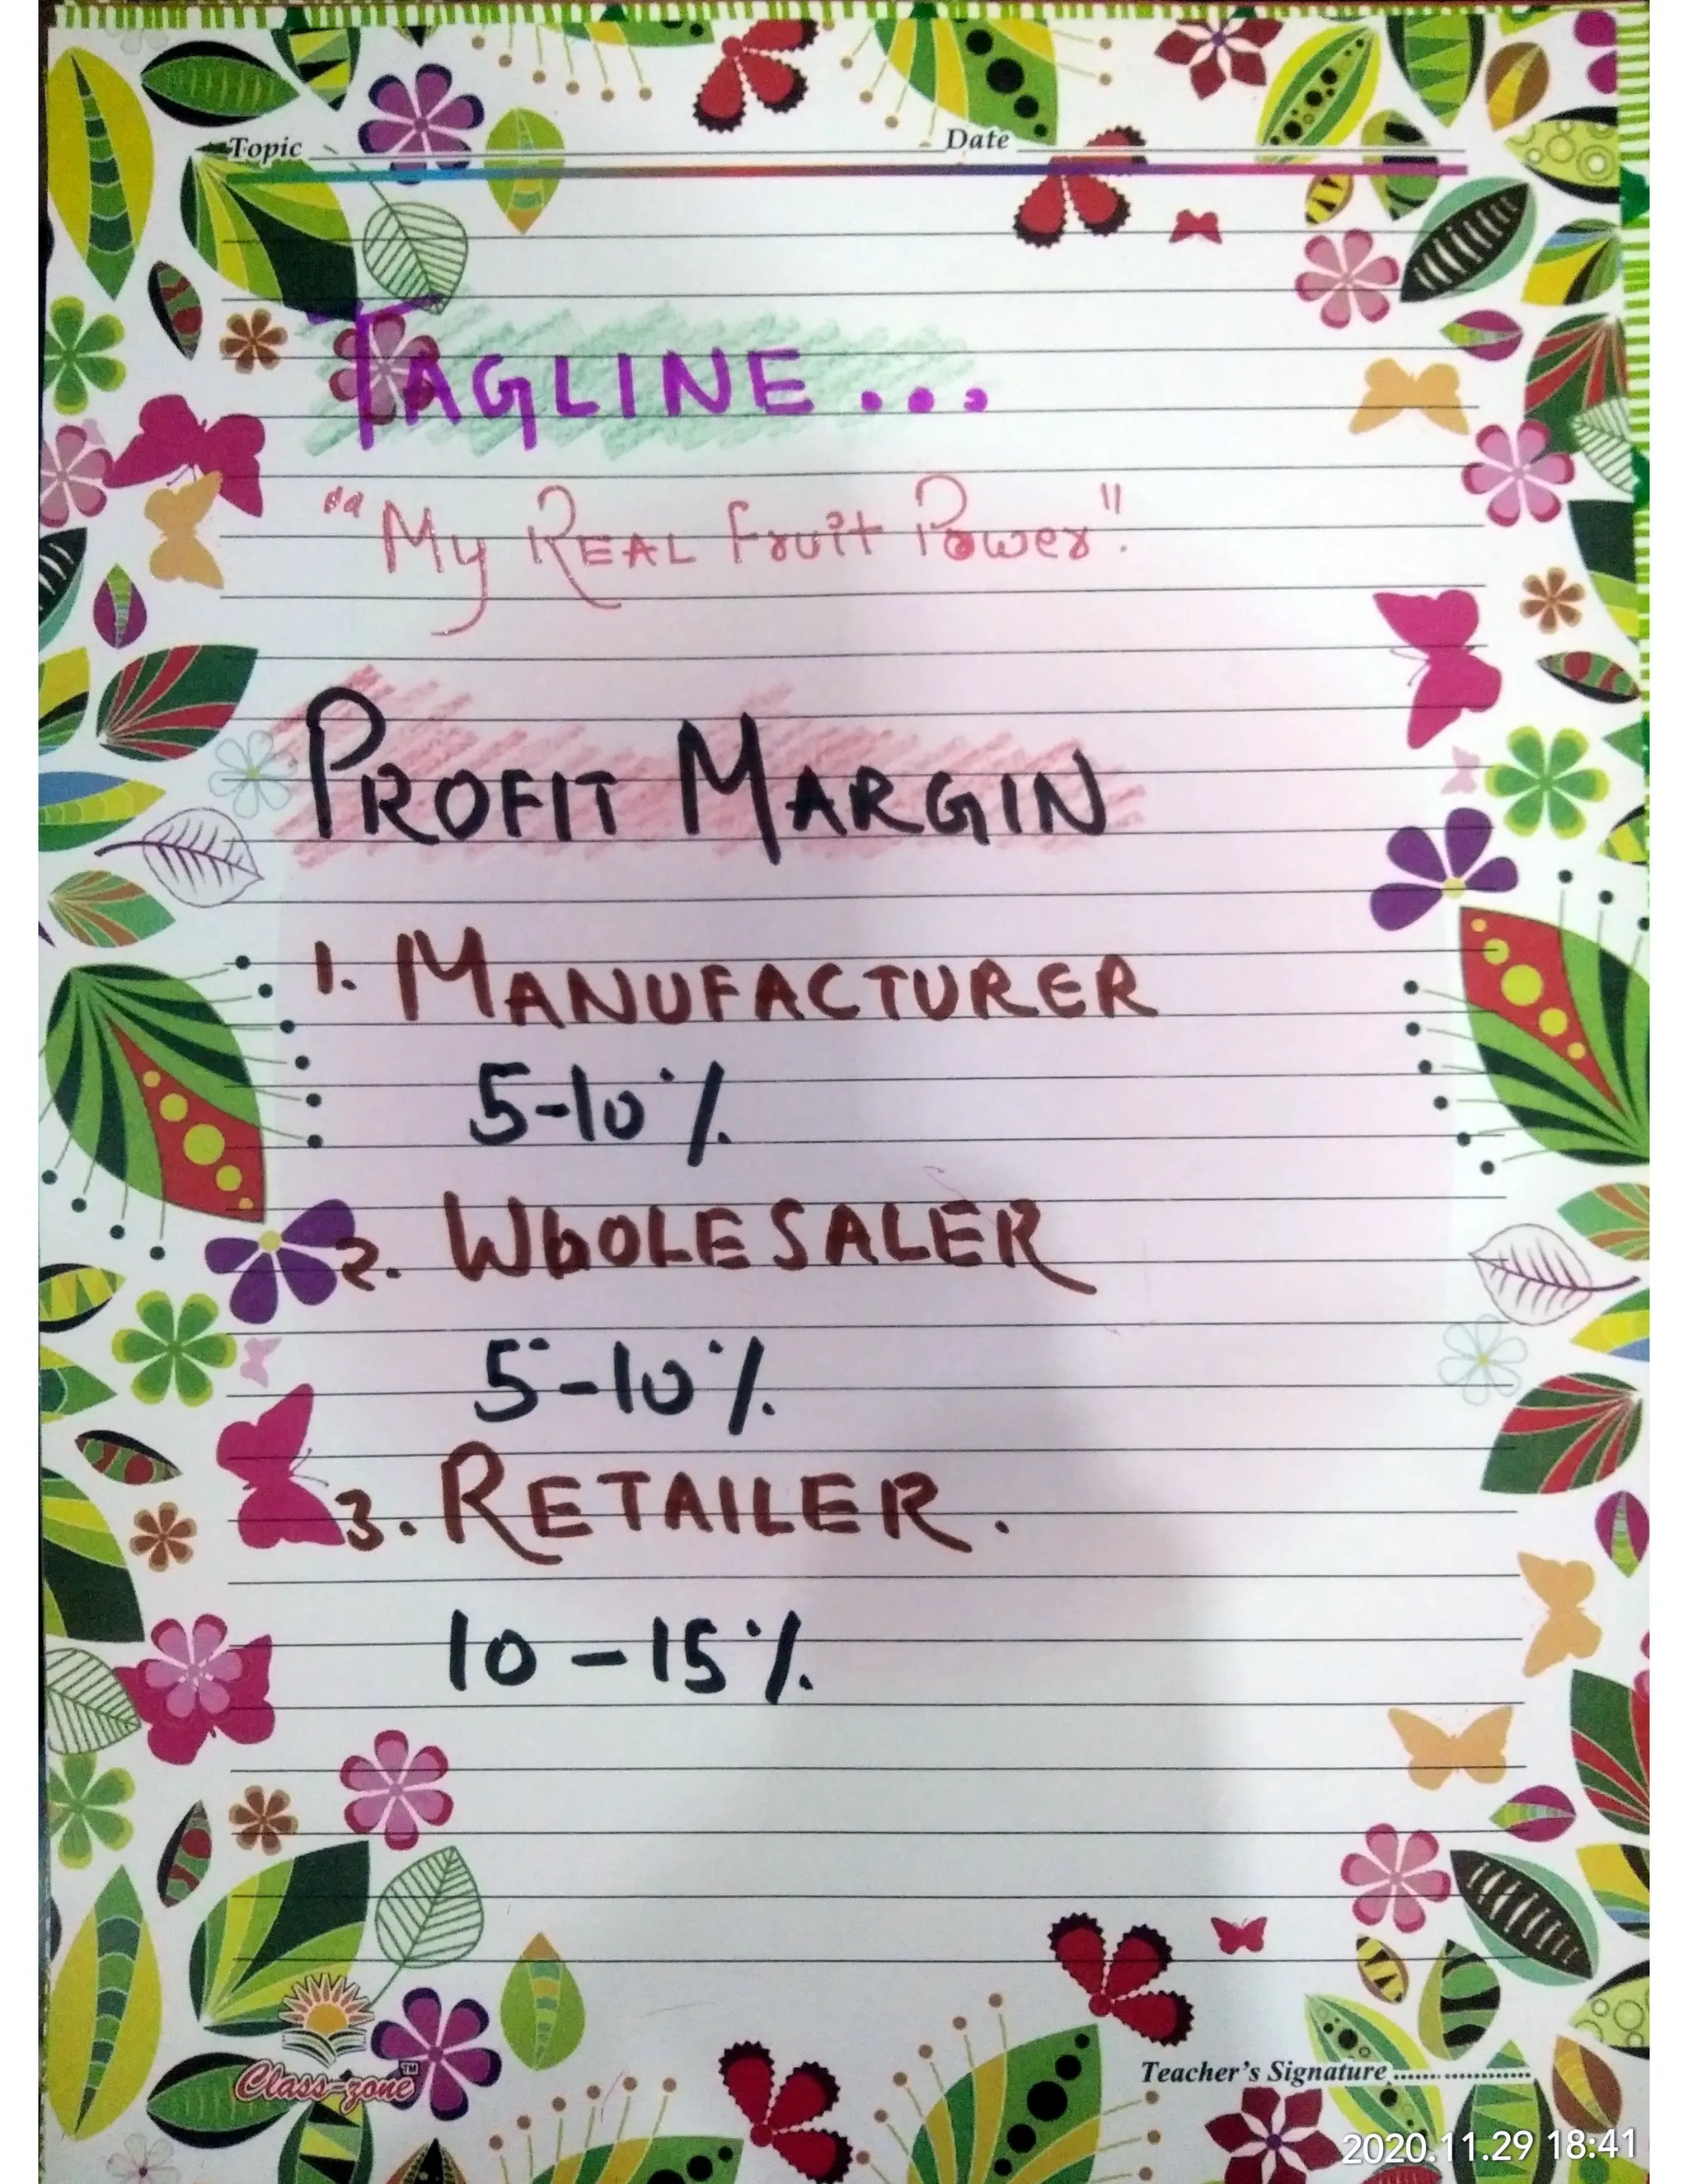 Topic Date
TAGLINE...
"My REAL Fruit Power".
PROFIT MARGIN
1. MANUFACTURER
5-10%
2. WhOLESALER
5-10%
3. RETAILER.
10-15%
Class-zone™
Teacher's Signature..................
2020.11.29 18:41